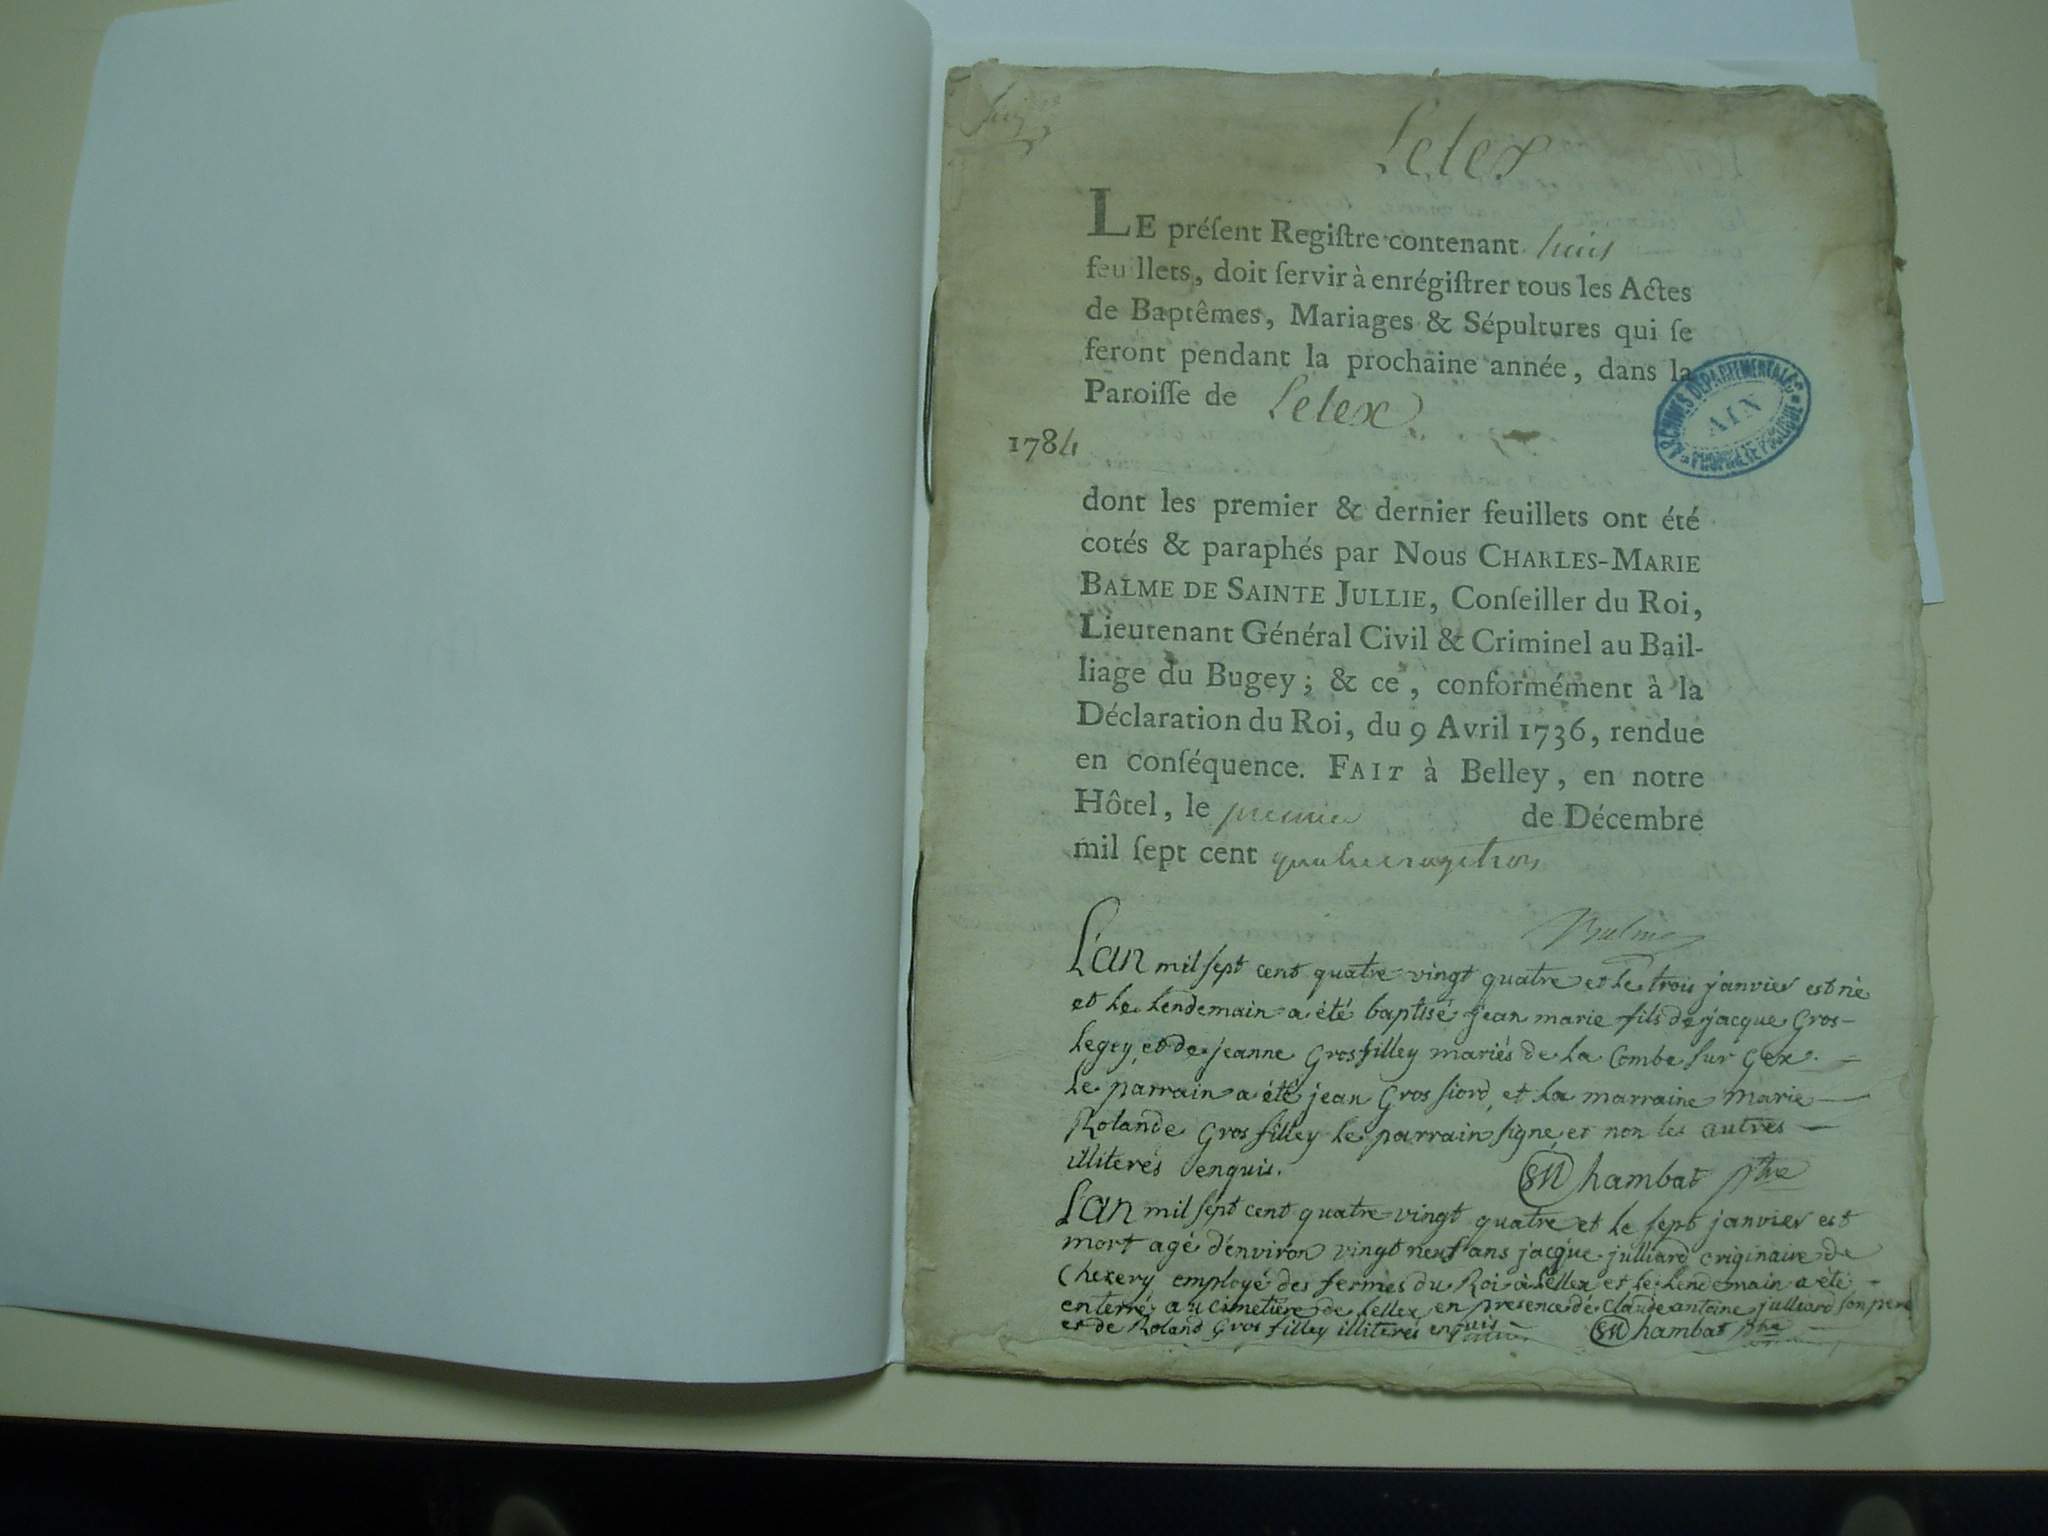 Lelex
LE préſent Regiſtre contenant huit
feuillets, doit ſervir à enrégiſtrer tous les Actes
de Baptêmes, Mariages & Sépultures qui ſe
feront pendant la prochaine année, dans la
Paroiſſe de Lelex
1784
ARCHIVES DÉPARTEMENTALES
AIN
PROPRIÉTÉ PUBLIQUE
dont les premier & dernier feuillets ont été
cotés & paraphés par Nous CHARLES-MARIE
BALME DE SAINTE JULLIE, Conſeiller du Roi,
Lieutenant Général Civil & Criminel au Bail-
liage du Bugey ; & ce, conformément à la
Déclaration du Roi, du 9 Avril 1736, rendue
en conſéquence. FAIT à Belley, en notre
Hôtel, le premier de Décembre
mil ſept cent quatrevingttrois
Balme
L'an mil sept cent quatre-vingt quatre et le trois janvier est né
et le lendemain a été baptisé jean marie fils de jacque Gros-
legey et de jeanne Grosfilley mariés de la Combe sur Gex. =
le parrain a été jean Gros fiord, et la marraine Marie
Rolande Gros filley le parrain signe et non les autres
illiterés enquis.
Chambat ptre
L'an mil sept cent quatre-vingt quatre et le sept janvier est
mort agé d'environ vingt neuf ans jacque julliard originaire de
Chezery employé des fermes du Roi à Lellex et le lendemain a été
enterré au cimetière de Lellex en presence de Claude antoine julliard son pere
et de Roland Gros filley illiterés enquis Chambat ptre